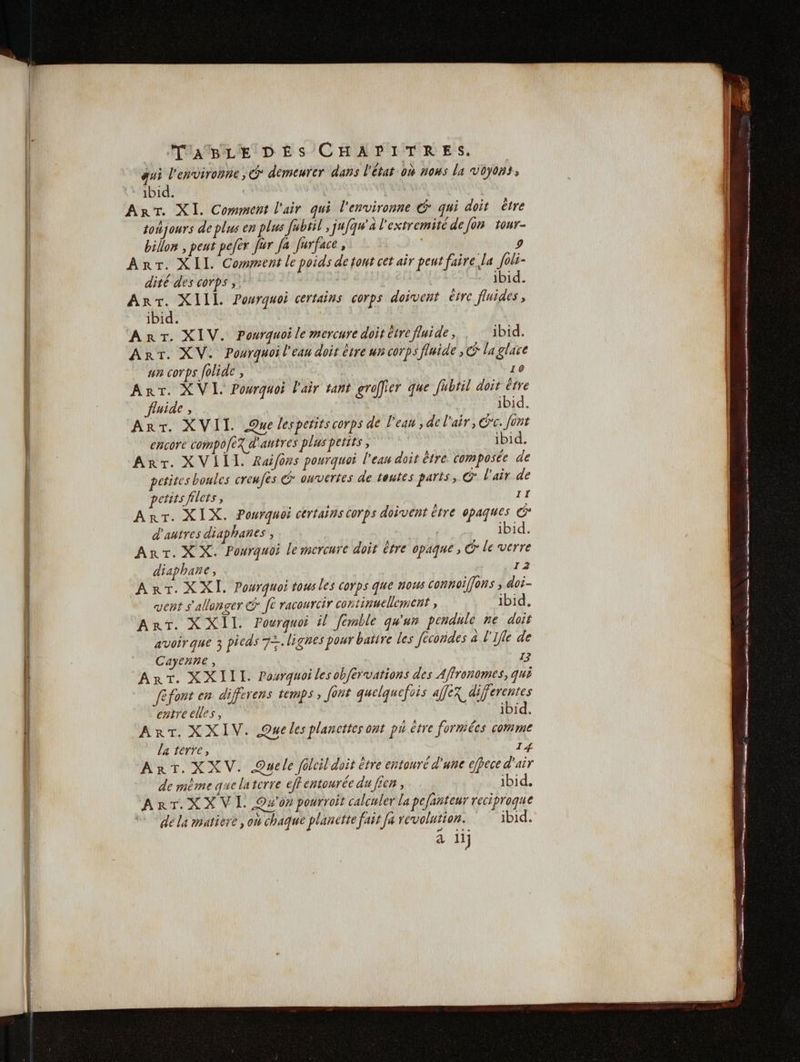 TABLE DES CHAPITRES.
qui l'environne, & demeurer dans l'état où nous la voyons,
ibid.
ART. XI. Comment l'air qui l'environne & qui doit être
toûjours de plus en plus ſubtil, juſqu'à l'extremité de ſon tour-
billon, peut peſer ſur ſa ſurface, 9
ART. XII. Comment le poids de tout cet air peut faire la ſoli-
dité des corps, ibid.
ART. XIII. Pourquoi certains corps doivent être fluides,
ibid.
ART. XIV. Pourquoi le mercure doit être fluide, ibid.
ART. XV. Pourquoi l'eau doit être un corps fluide, & la glace
un corps ſolide, 10
ART. XVI. Pourquoi l'air tant groſſier que ſubtil doit être
fluide, ibid.
ART. XVII. Que les petits corps de l'eau, de l'air, &c. ſont
encore compoſeζ d'autres plus petits, ibid.
ART. XVIII. Raiſons pourquoi l'eau doit être composée de
petites boules creuſes & ouvertes de toutes parts, & l'air de
petits filets, 11
ART. XIX. Pourquoi certains corps doivent être opaques &
d'autres diaphanes, ibid.
ART. XX. Pourquoi le mercure doit être opaque, & le verre
diaphane, 12
ART. XXI. Pourquoi tous les corps que nous connoiſſons, doi-
vent s'allonger & ſe racourcir continuellement, ibid.
ART. XXII. Pourquoi il ſemble qu'un pendule ne doit
avoir que 3 pieds 7½. lignes pour battre les ſecondes à l'Iſle de
Cayenne, 13
ART. XXIII. Pourquoi les obſervations des Aſtronomes, qui
ſe font en differens temps, ſont quelquefois aſſeζ differentes
entre elles, ibid.
ART. XXIV. Que les planettes ont pû être formées comme
la terre, 14
ART. XXV. Que le ſoleil doit être entouré d'une eſpece d'air
de même que la terre eſt entourée du ſien, ibid.
ART. XXVI. Qu'on pourroit calculer la peſanteur reciproque
de la matiere, où chaque planette fait ſa revolution. ibid.
ã iij